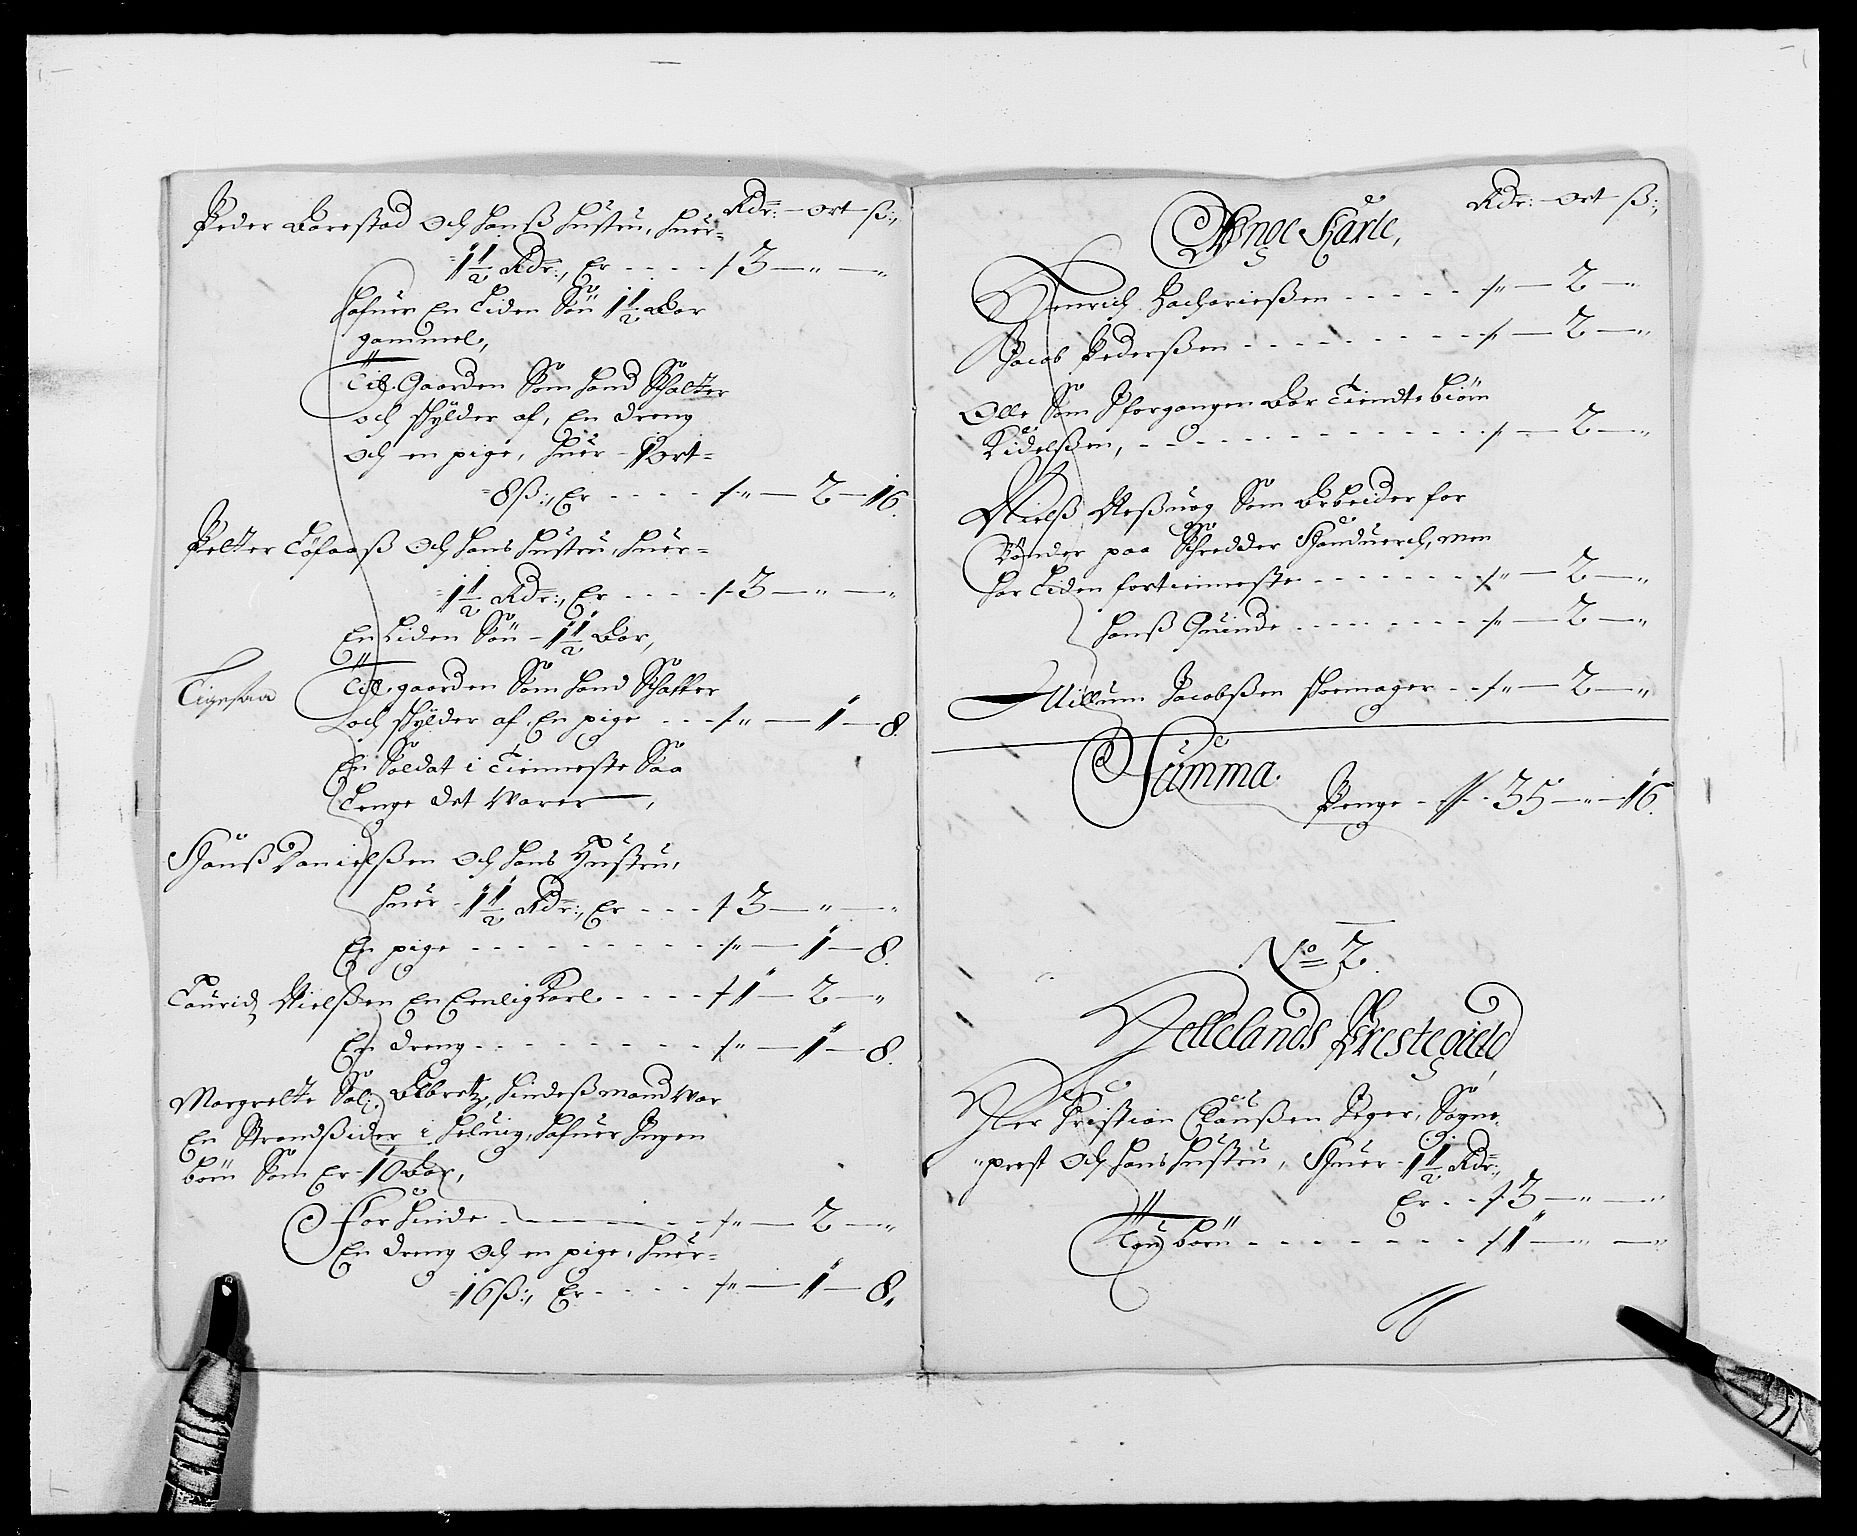 Rdr: — ort — ß:,
Peder Barestad och hanß hustru, huer-
1½ Rdr:, Er - - - - - 3 — „ — „
hafuer En liden Søn 1½ Aar
gammel,
Till Gaarden Som hand Schatter
och schylder af, En dreng
och en pige, huer - 1 ort-
8ß:, Er - - - - - „ — 2 — 16.
Petter och hans hustru, huer-
1½ Rdr:, Er - - - - - 3 — „ — „
En Liden Søn - 1½ Aar,
Till gaarden Som hand Schatter
och schylder af, En pige - - - „ — 1 — 8.
En Soldat i Tienneste Saa
Lenge det Varer,
Hanß Danielßen och hans Hustru,
huer - 1½ Rdr:, Er - - - 3 — „ — „
En pige - - - - - - - - „ — 1 — 8.
Lauridz Nielßen En Eenlig Karl - - - - 1 — 2 — „
En dreng - - - - - - - - „ — 1 — 8.
Margrette Sal: Albretz, hindeß mand Var
En Strandsider i hafuer Ingen
börn Som Er 10 Aar,
For hinde - - - - - - „ — 2 — „
En dreng och en pige, huer-
16ß:, Er - - - - „ — 1 — 8.
Rdr: — ort — ß:,
Vnge Karle,
Henrich Zacharießen - - - - - „ — 2 — „
Jacob Pederßen - - - - - - - - „ — 2 — „
Olle Som I forgangen Aar Tiendte Biörn
Kidelßen, - - - - - - - - - - „ — 2 — „
Nielß Som Arbeider for
Bønder paa Schredder Handuerch, men
har Liden fortienneste - - - - - - - „ — 2 — „
Hanß Quinde - - - - - - - - „ — 2 — „
Willum Jacobßen schomager - - „ — 2 — „
Summa.
Penge - - 35 — „ — 16.
No 2.
Hellelands Prestegield
Her Kristian Claußen Sogne-
prest och hans hustru, Huer - 1½ Rdr:,
Er - - 3 — „ — „
Tou börn - - - - - - - - 1 — „ — „